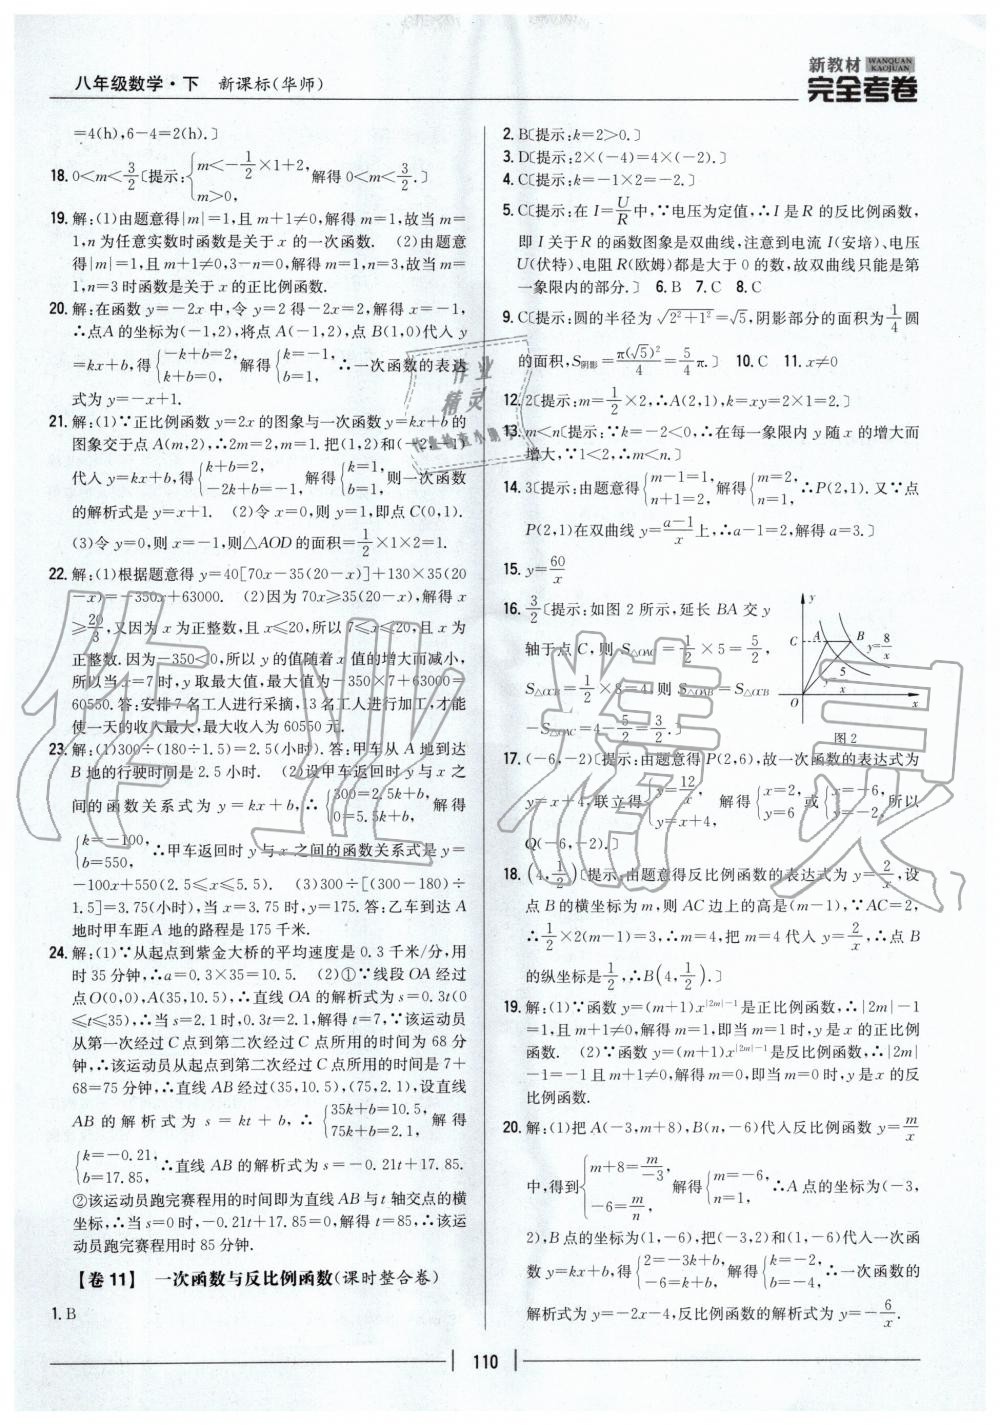 八年级数学·下 新课标(华师)
新教材 WANQUAN KAOJUAN
完全考卷
=4(h),6-4=2(h).〕
18.0<m<3/2〔提示:{m<-1/2×1+2, m>0, 解得0<m<3/2.〕
19.解:(1)由题意得|m|=1,且m+1≠0,解得m=1,故当m=
1,n为任意实数时函数是关于x的一次函数. (2)由题意
得|m|=1,且m+1≠0,3-n=0,解得m=1,n=3,故当m=
1,n=3时函数是关于x的正比例函数.
20.解:在函数y=-2x中,令y=2得-2x=2,解得x=-1,
∴点A的坐标为(-1,2),将点A(-1,2),点B(1,0)代入y
=kx+b,得{-k+b=2, k+b=0, 解得{k=-1, b=1, ∴一次函数的表达
式为y=-x+1.
21.解:(1)∵正比例函数y=2x的图象与一次函数y=kx+b的
图象交于点A(m,2),∴2m=2,m=1.把(1,2)和(-2,-1)
代入y=kx+b,得{k+b=2, -2k+b=-1, 解得{k=1, b=1, 则一次函数
的解析式是y=x+1. (2)令x=0,则y=1,即点C(0,1).
(3)令y=0,则x=-1,则△AOD的面积=1/2×1×2=1.
22.解:(1)根据题意得y=40[70x-35(20-x)]+130×35(20
-x)=-350x+63000. (2)因为70x≥35(20-x),解得x
≥20/3,又因为x为正整数,且x≤20,所以7≤x≤20,且x为
正整数.因为-350<0,所以y的值随着x值的增大而减小,
所以当x=7时,y取最大值,最大值为-350×7+63000=
60550.答:安排7名工人进行采摘,13名工人进行加工,才能
使一天的收入最大,最大收入为60550元.
23.解:(1)300÷(180÷1.5)=2.5(小时).答:甲车从A地到达
B地的行驶时间是2.5小时. (2)设甲车返回时y与x之
间的函数关系式为y=kx+b,∴{300=2.5k+b, 0=5.5k+b, 解得
{k=-100, b=550, ∴甲车返回时y与x之间的函数关系式是y=
-100x+550(2.5≤x≤5.5). (3)300÷[(300-180)÷
1.5]=3.75(小时),当x=3.75时,y=175.答:乙车到达A
地时甲车距A地的路程是175千米.
24.解:(1)∵从起点到紫金大桥的平均速度是0.3千米/分,用
时35分钟,∴a=0.3×35=10.5. (2)①∵线段OA经过
点O(0,0),A(35,10.5),∴直线OA的解析式为s=0.3t(0
≤t≤35),∴当s=2.1时,0.3t=2.1,解得t=7,∵该运动员
从第一次经过C点到第二次经过C点所用的时间为68分
钟,∴该运动员从起点到第二次经过C点所用的时间是7+
68=75分钟,∴直线AB经过(35,10.5),(75,2.1),设直线
AB的解析式为s=kt+b,∴{35k+b=10.5, 75k+b=2.1, 解得
{k=-0.21, b=17.85, ∴直线AB的解析式为s=-0.21t+17.85.
②该运动员跑完赛程用的时间即为直线AB与t轴交点的横
坐标,∴当s=0时,-0.21t+17.85=0,解得t=85,∴该运
动员跑完赛程用时85分钟.
【卷11】 一次函数与反比例函数(课时整合卷)
1.B
2.B〔提示:k=2>0.〕
3.D〔提示:2×(-4)=4×(-2).〕
4.C〔提示:k=-1×2=-2.〕
5.C〔提示:在I=U/R中,∵电压为定值,∴I是R的反比例函数,
即I关于R的函数图象是双曲线,注意到电流I(安培)、电压
U(伏特)、电阻R(欧姆)都是大于0的数,故双曲线只能是第
一象限内的部分.〕 6.B 7.C 8.C
9.C〔提示:圆的半径为√(2²+1²)=√5,阴影部分的面积为1/4圆
的面积,S阴影=π(√5)²/4=5/4π.〕 10.C 11.x≠0
12.2〔提示:m=1/2×2,∴A(2,1),k=xy=2×1=2.〕
13.m<n〔提示:∵k=-2<0,∴在每一象限内y随x的增大而
增大,∵1<2,∴m<n.〕
14.3〔提示:由题意得{m-1=1, n+1=2, 解得{m=2, n=1, ∴P(2,1).又∵点
P(2,1)在双曲线y=(a-1)/x上,∴a-1=2,解得a=3.〕
15.y=60/x
16.3/2〔提示:如图2所示,延长BA交y
轴于点C,则S△OAC=1/2×5=5/2,
S△OCB=1/2×8=4,则S△OAB=S△OCB
-S△OAC=4-5/2=3/2.〕
y C A B y=8/x y=5/x O x
图2
17.(-6,-2)〔提示:由题意得P(2,6),故一次函数的表达式为
y=x+4,联立得{y=12/x, y=x+4, 解得{x=2, y=6 或{x=-6, y=-2, 所以
Q(-6,-2).〕
18.(4,1/2)〔提示:由题意得反比例函数的表达式为y=2/x,设
点B的横坐标为m,则AC边上的高是(m-1),∵AC=2,
∴1/2×2(m-1)=3,∴m=4,把m=4代入y=2/x,∴点B
的纵坐标是1/2,∴B(4,1/2).〕
19.解:(1)∵函数y=(m+1)x^|2m|-1是正比例函数,∴|2m|-1
=1,且m+1≠0,解得m=1,即当m=1时,y是x的正比例
函数. (2)∵函数y=(m+1)x^|2m|-1是反比例函数,∴|2m|
-1=-1且m+1≠0,解得m=0,即当m=0时,y是x的反
比例函数.
20.解:(1)把A(-3,m+8),B(n,-6)代入反比例函数y=m/x
中,得到{m+8=m/-3, -6=m/n, 解得{m=-6, n=1, ∴A点的坐标为(-3,
2),B点的坐标为(1,-6),把(-3,2)和(1,-6)代入一次函
数y=kx+b,得{2=-3k+b, -6=k+b, 解得{k=-2, b=-4, ∴一次函数的
解析式为y=-2x-4,反比例函数的解析式为y=-6/x.
110
作业精灵